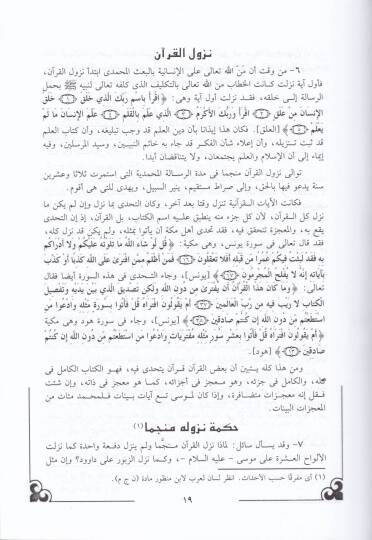 نزول القرآن
٦- من وقت أن منّ الله تعالى على الإنسانية بالبعث المحمدى ابتدأ نزول القرآن،
فأول آية نزلت كانت الخطاب من الله تعالى بالتكليف الذى كلفه تعالى لنبيه ﷺ بحمل
الرسالة إلى خلقه، فقد نزلت أول آية وهى: ﴿ اقْرَأْ بِاسْمِ رَبِّكَ الَّذِي خَلَقَ ﴿١﴾ خَلَقَ
الإِنسَانَ مِنْ عَلَقٍ ﴿٢﴾ اقْرَأْ وَرَبُّكَ الأَكْرَمُ ﴿٣﴾ الَّذِي عَلَّمَ بِالْقَلَمِ ﴿٤﴾ عَلَّمَ الإِنسَانَ مَا لَمْ
يَعْلَمْ ﴿٥﴾ [العلق]. فكان هذا إيذانا بأن دين العلم قد وجب تبليغه، وأن كتاب العلم
قد ثبت تنزيله، وأن إعلاء شأن الفكر قد جاء به خاتم النبيين، وسيد المرسلين، وفيه
إيماء إلى أن الإسلام والعلم يجتمعان، ولا يتناقضان أبدا.
توالى نزول القرآن منجما فى مدة الرسالة المحمدية التى استمرت ثلاثا وعشرين
سنة يدعو فيها بالحق، وإلى صراط مستقيم، ينير السبيل، ويهدى للتى هى أقوم.
فكانت الآيات القرآنية تنزل وقتا بعد آخر، وكان التحدى بما نزل وإن لم يكن ما
نزل كل القرآن، لأن كل جزء منه ينطبق عليه اسم الكتاب، بل القرآن، إذ إن التحدى
يقع به، والمعجزة تتحقق فيه، فقد تحدى أهل مكة أن يأتوا بمثله، ولم يكن قد نزل كله،
فقد قال تعالى فى سورة يونس، وهى مكية: ﴿ قُل لَّوْ شَاءَ اللَّهُ مَا تَلَوْتُهُ عَلَيْكُمْ وَلا أَدْرَاكُم
بِهِ فَقَدْ لَبِثْتُ فِيكُمْ عُمُرًا مِّن قَبْلِهِ أَفَلا تَعْقِلُونَ ﴿١٦﴾ فَمَنْ أَظْلَمُ مِمَّنِ افْتَرَىٰ عَلَى اللَّهِ كَذِبًا أَوْ كَذَّبَ
بِآيَاتِهِ إِنَّهُ لا يُفْلِحُ الْمُجْرِمُونَ ﴿١٧﴾ [يونس]، وجاء التحدى فى هذه السورة أيضا فقال
تعالى: ﴿ وَمَا كَانَ هَٰذَا الْقُرْآنُ أَن يُفْتَرَىٰ مِن دُونِ اللَّهِ وَلَٰكِن تَصْدِيقَ الَّذِي بَيْنَ يَدَيْهِ وَتَفْصِيلَ
الْكِتَابِ لا رَيْبَ فِيهِ مِن رَّبِّ الْعَالَمِينَ ﴿٣٧﴾ أَمْ يَقُولُونَ افْتَرَاهُ قُلْ فَأْتُوا بِسُورَةٍ مِّثْلِهِ وَادْعُوا مَنِ
اسْتَطَعْتُم مِّن دُونِ اللَّهِ إِن كُنتُمْ صَادِقِينَ ﴿٣٨﴾ [يونس]، وجاء فى سورة هود وهى مكية
﴿ أَمْ يَقُولُونَ افْتَرَاهُ قُلْ فَأْتُوا بِعَشْرِ سُوَرٍ مِّثْلِهِ مُفْتَرَيَاتٍ وَادْعُوا مَنِ اسْتَطَعْتُم مِّن دُونِ اللَّهِ إِن كُنتُمْ
صَادِقِينَ ﴿١٣﴾ [هود].
ومن هذا كله يستبين أن بعض القرآن قرآن يتحدى فيه، فهو الكتاب الكامل فى
كله، والكامل فى جزئه، وهو معجز فى أجزائه، كما هو معجز فى ذاته، وإن شئت
فقل إنه معجزات متضافرة، وإذا كان لموسى تسع آيات بينات فلمحمد مئات من
المعجزات البينات.
حكمة نزوله منجما (١)
٧- وقد يسأل سائل: لماذا نزل القرآن منجَّما ولم ينزل دفعة واحدة كما نزلت
الألواح العشرة على موسى - عليه السلام -، وكما نزل الزبور على داود؟ وإن مثل
(١) أى مفرقًا حسب الأحداث. انظر لسان العرب لابن منظور مادة (ن ج م).
١٩